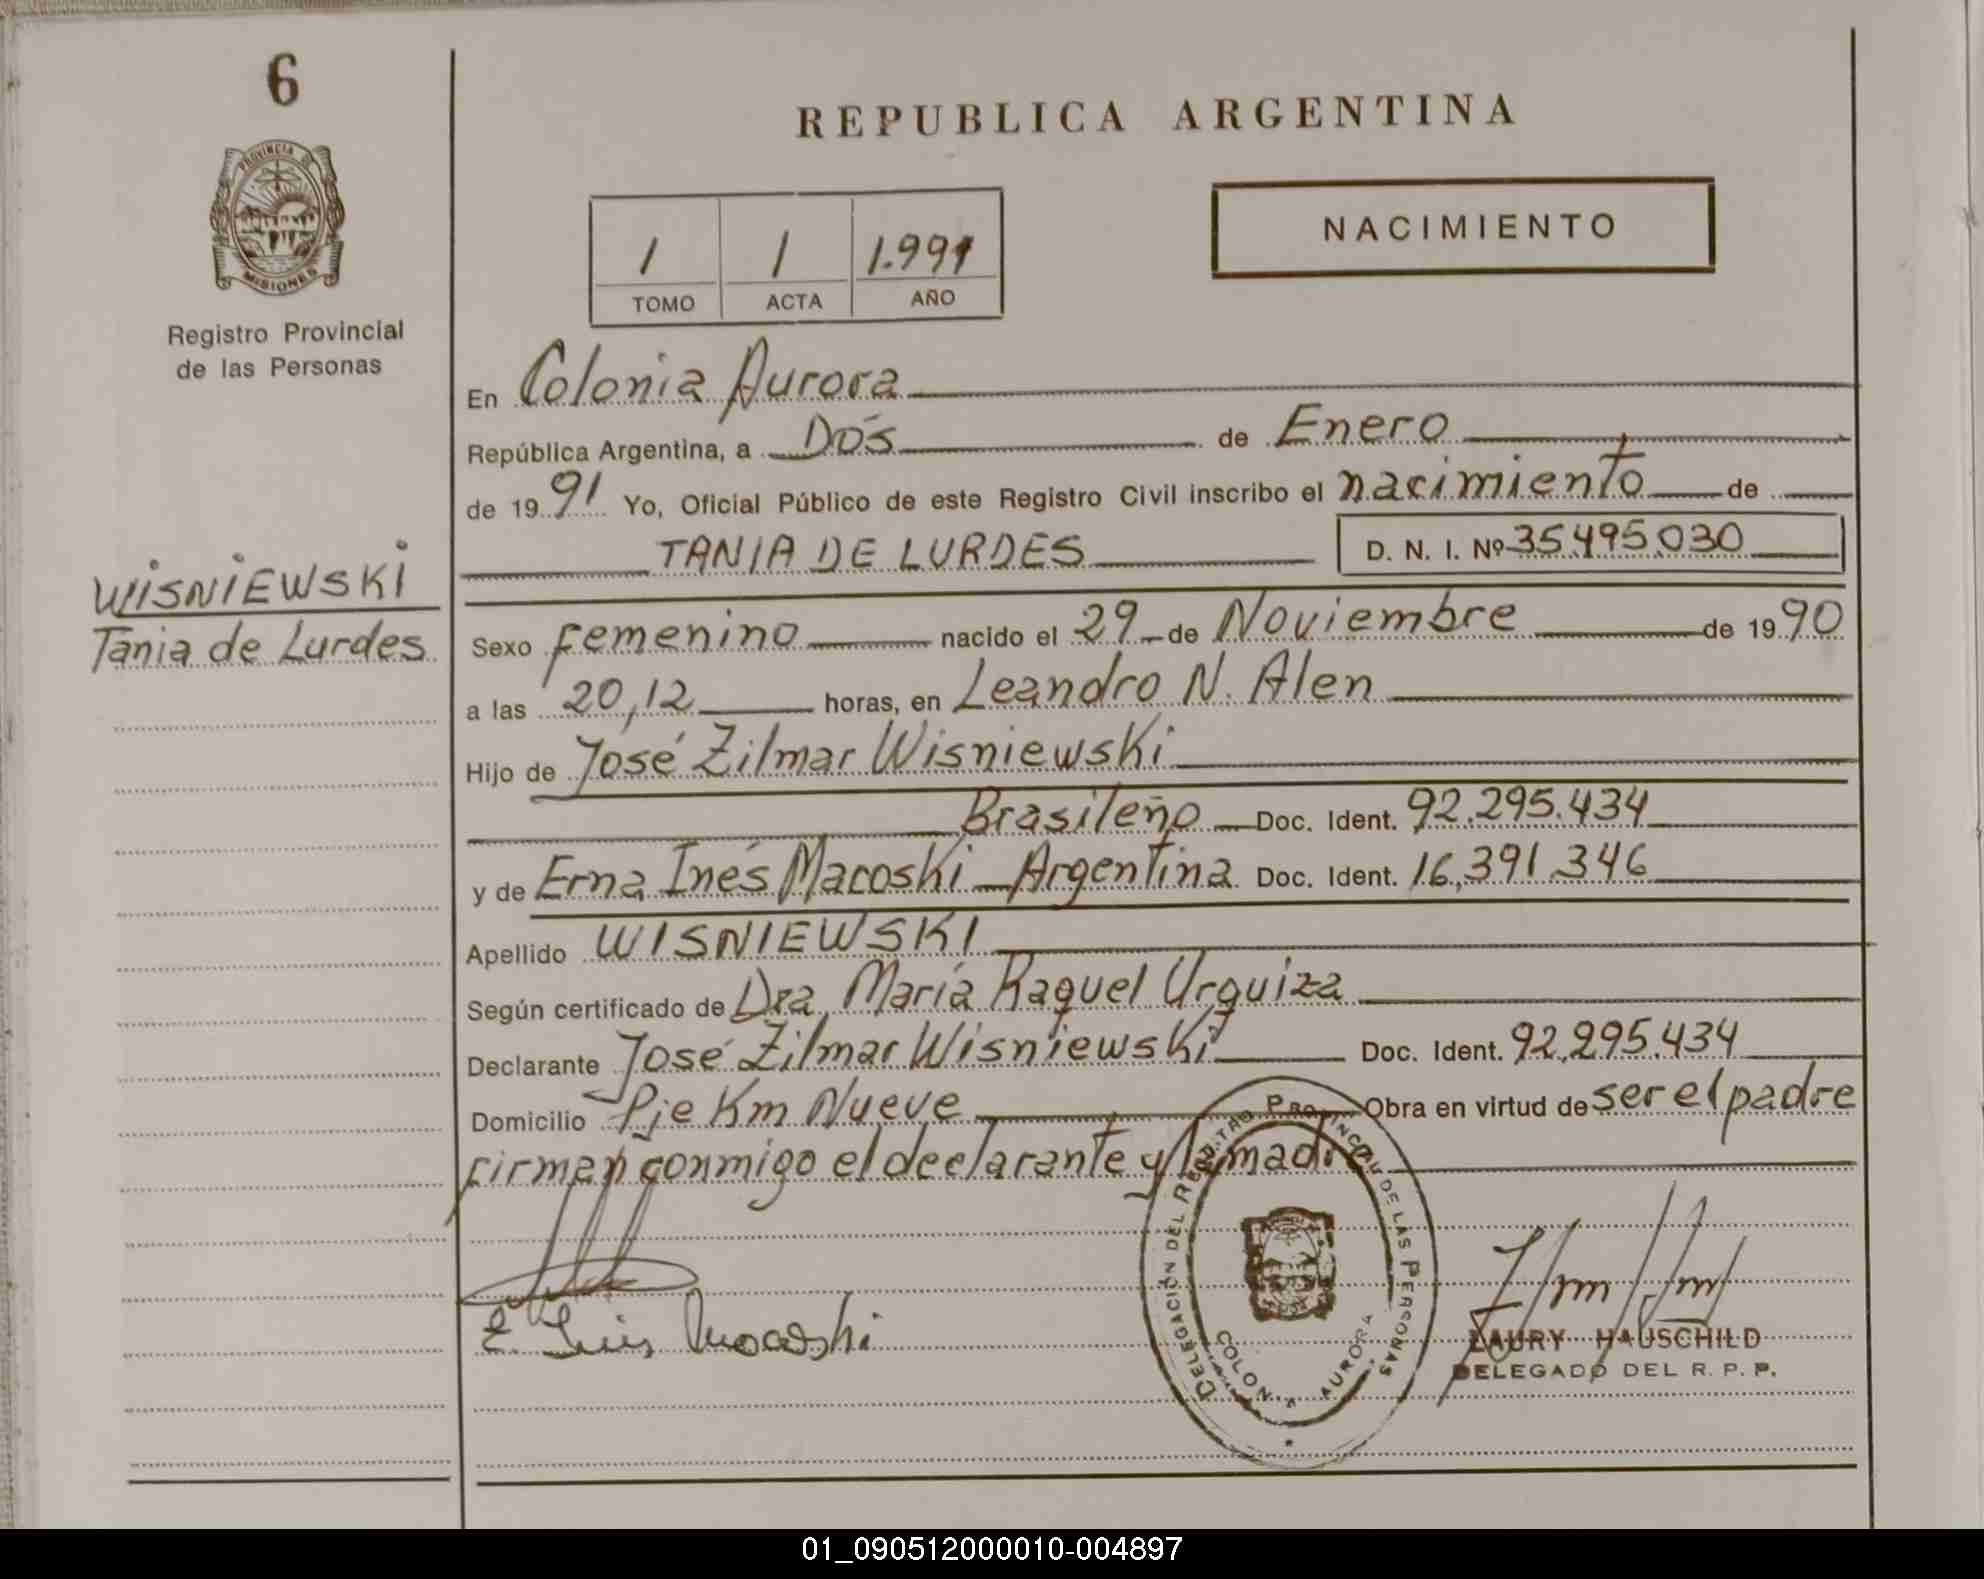 6
PROVINCIA DE
MISIONES
Registro Provincial
de las Personas
WISNIEWSKI
Tania de Lurdes
REPUBLICA ARGENTINA
NACIMIENTO
1 1 1.991
TOMO ACTA AÑO
En Colonia Aurora
República Argentina, a Dós de Enero
de 1991 Yo, Oficial Público de este Registro Civil inscribo el nacimiento de
TANIA DE LURDES D. N. I. Nº 35.495.030
Sexo femenino nacido el 29 de Noviembre de 1990
a las 20,12 horas, en Leandro N. Alen
Hijo de José Zilmar Wisniewski
Brasileño Doc. Ident. 92.295.434
y de Erna Inés Macoski Argentina Doc. Ident. 16,391.346
Apellido WISNIEWSKI
Según certificado de Dra. María Raquel Urquiza
Declarante José Zilmar Wisniewski Doc. Ident. 92,295.434
Domicilio Pje Km Nueve Obra en virtud de ser el padre
firman conmigo el declarante y la madre
DELEGACIÓN DEL REGISTRO PROVINCIAL DE LAS PERSONAS
COLONIA AURORA
LAURY HAUSCHILD
DELEGADO DEL R. P. P.
01_090512000010-004897